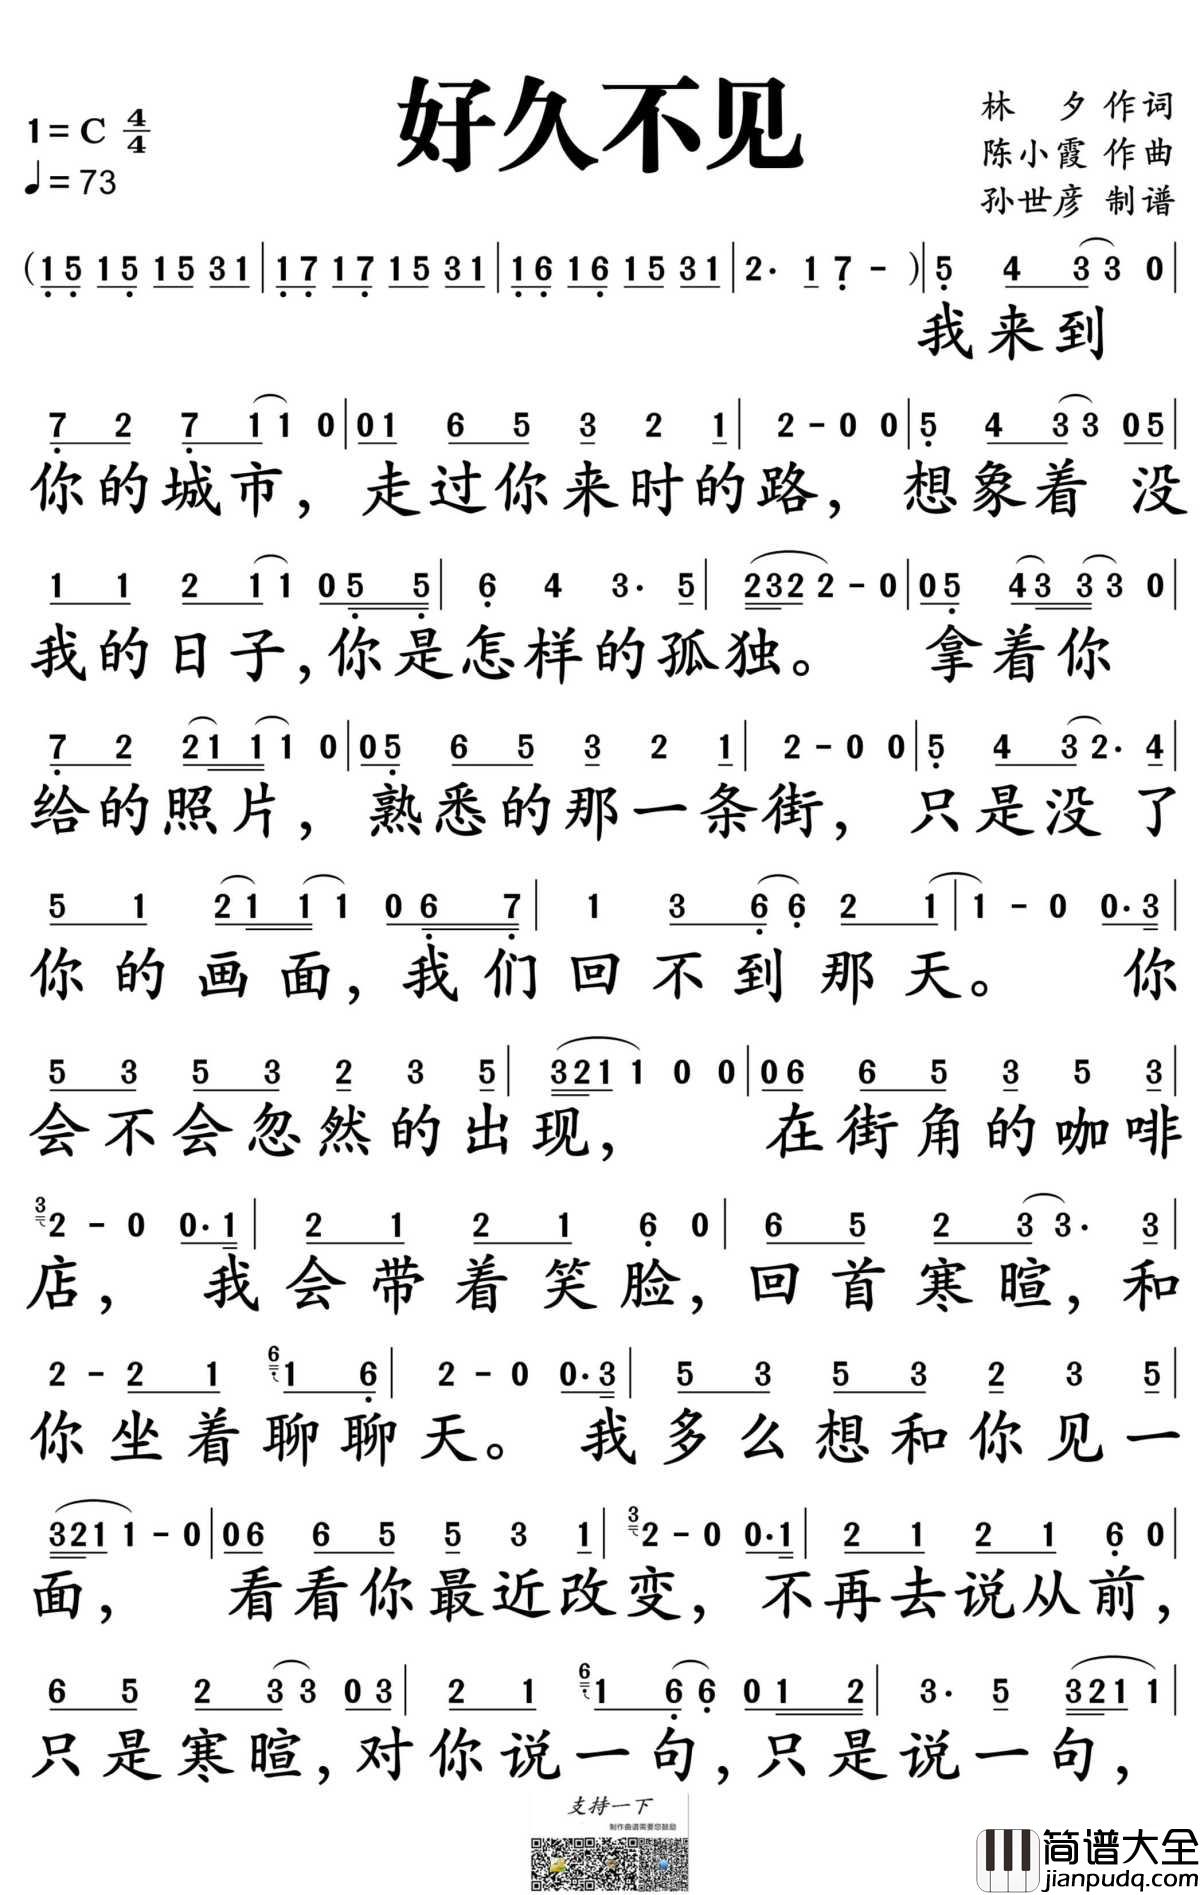 好久不见
1=C 4/4
♩=73
林 夕 作词
陈小霞 作曲
孙世彦 制谱
(15 15 15 31|17 17 15 31|16 16 15 31|2· 1 7 -)|5 4 3 3 0|
我来到
7 2 7 1 1 0|01 6 5 3 2 1|2 - 0 0|5 4 3 3 05|
你的城市,走过你来时的路,想象着 没
1 1 2 1 1 05 5|6 4 3· 5|232 2 - 0|05 43 3 3 0|
我的日子,你是怎样的孤独。 拿着你
7 2 21 1 1 0|05 6 5 3 2 1|2 - 0 0|5 4 3 2· 4|
给的照片,熟悉的那一条街,只是没了
5 1 21 1 1 06 7|1 3 6 6 2 1|1 - 0 0·3|
你的画面,我们回不到那天。 你
5 3 5 3 2 3 5|321 1 0 0|06 6 5 3 5 3|
会不会忽然的出现, 在街角的咖啡
3 2 - 0 0·1|2 1 2 1 6 0|6 5 2 3 3· 3|
店, 我会带着笑脸,回首寒暄,和
2 - 2 1 6 1 6|2 - 0 0·3|5 3 5 3 2 3 5|
你坐着聊聊天。 我多么想和你见一
321 1 - 0|06 6 5 5 3 1|3 2 - 0 0·1|2 1 2 1 6 0|
面, 看看你最近改变,不再去说从前,
6 5 2 3 3 03|2 1 6 1 6 6 01 2|3· 5 321 1|
只是寒暄,对你说一句,只是说一句,
支持一下
制作曲谱需要您鼓励
简谱大全
jianpudq.com